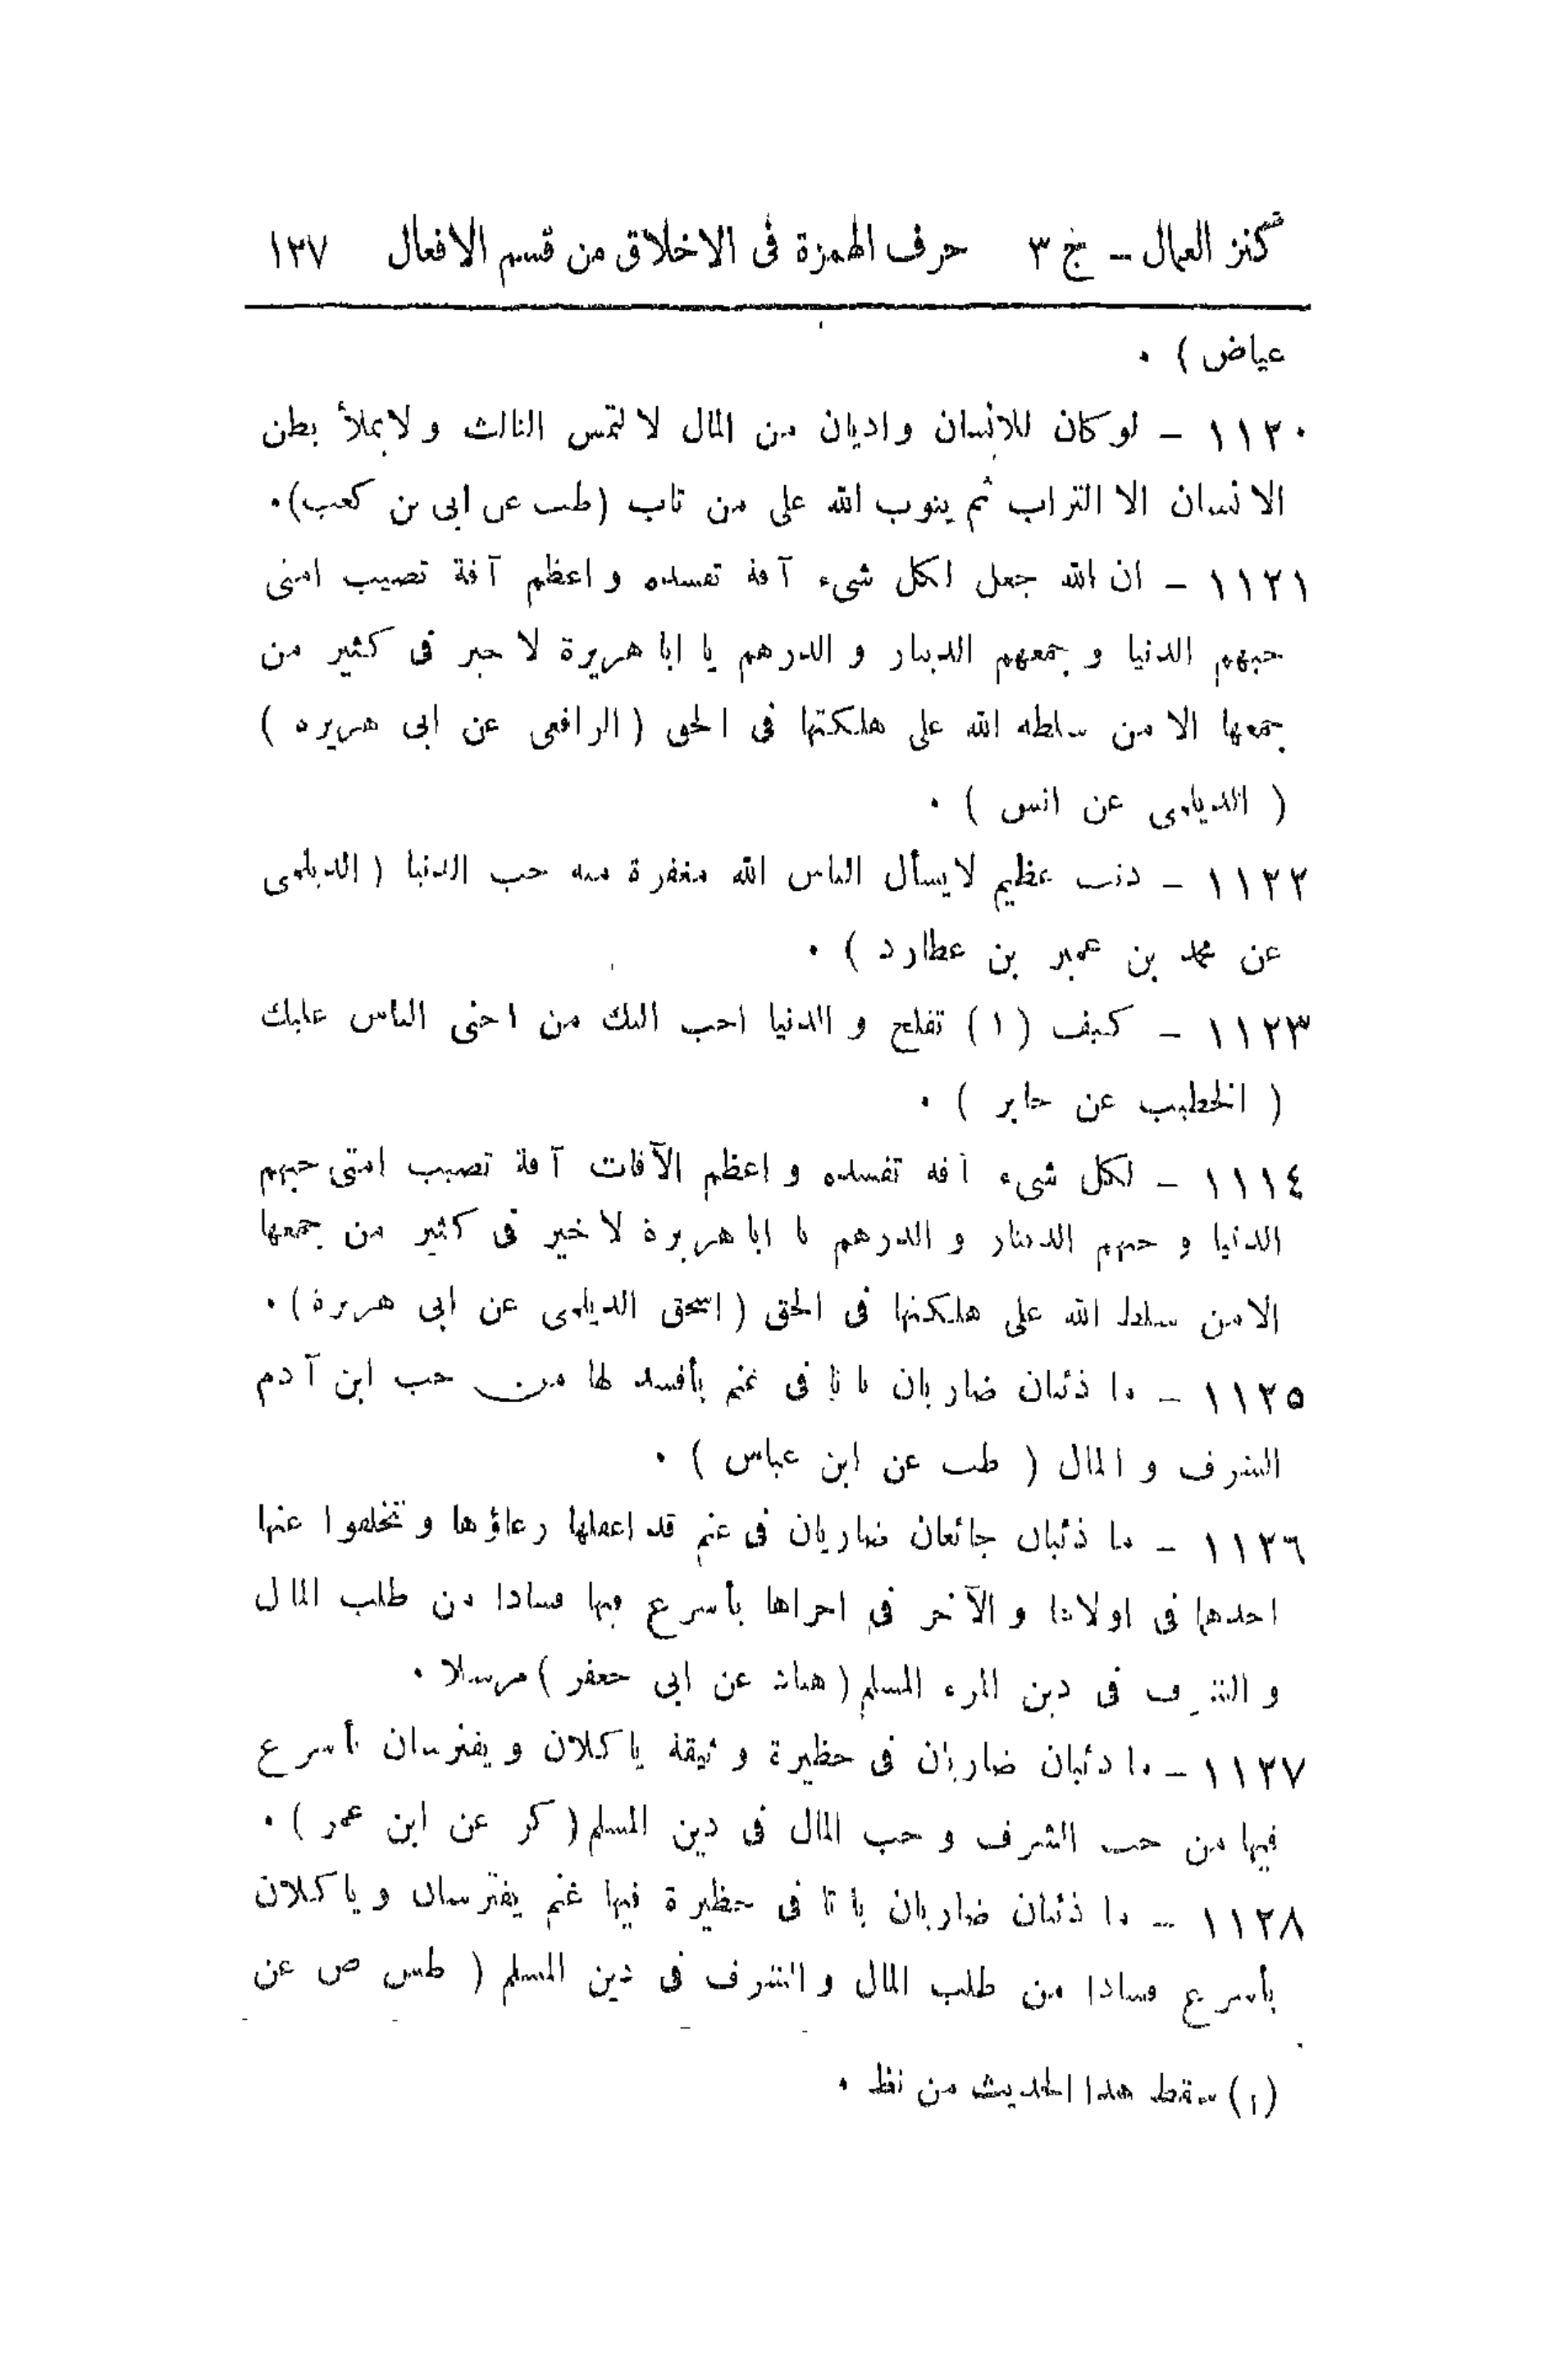 كنز العمال – ج ٣ حرف الهمزة فى الاخلاق من قسم الافعال ١٢٧
عياض ) .
١١٢٠ – لو كان للانسان واديان من المال لا لتمس الثالث و لا يملأ بطن
الانسان الا التراب ثم يتوب الله على من تاب (طب عن ابى بن كعب).
١١٢١ – ان الله جعل لكل شىء آفة تفسده و اعظم آفة تصيب امتى
حبهم الدنيا و جمعهم الدينار و الدرهم يا ابا هريرة لا خير فى كثير من
جمعها الا من سلطه الله على هلكتها فى الحق ( الرافعى عن ابى هريره )
( الديلمى عن انس ) .
١١٢٢ – ذنب عظيم لا يسأل الناس الله مغفرة منه حب الدنيا ( الديلمى
عن محمد بن عمير بن عطارد ) .
١١٢٣ – كيف ( ١ ) تفلح و الدنيا احب اليك من احنى الناس عليك
( الخطيب عن جابر ) .
١١١٤ – لكل شىء آفه تفسده و اعظم الآفات آفة تصيب امتى حبهم
الدنيا و حبهم الدينار و الدرهم يا ابا هريرة لا خير فى كثير من جمعها
الا من سلط الله على هلكتها فى الحق ( اسحق الديلمى عن ابى هريرة ) .
١١٢٥ – ما ذئبان ضاريان باتا فى غنم بأفسد لها من حب ابن آدم
الشرف و المال ( طب عن ابن عباس ) .
١١٢٦ – ما ذئبان جائعان ضاريان فى غنم قد اغفلها رعاؤها و تخلفوا عنها
احدهما فى اولاها و الآخر فى اخراها بأسرع فيها فسادا من طلب المال
و الشرف فى دين المرء المسلم ( هناد عن ابى جعفر ) مرسلا .
١١٢٧ – ما ذئبان ضاريان فى حظيرة وثيقة ياكلان و يفترسان بأسرع
فيها من حب الشرف و حب المال فى دين المسلم ( كر عن ابن عمر ) .
١١٢٨ – ما ذئبان ضاريان باتا فى حظيرة فيها غنم يفترسان و ياكلان
بأسرع فسادا من طلب المال و الشرف فى دين المسلم ( طس ص عن
(١) سقط هذا الحديث من نظ .